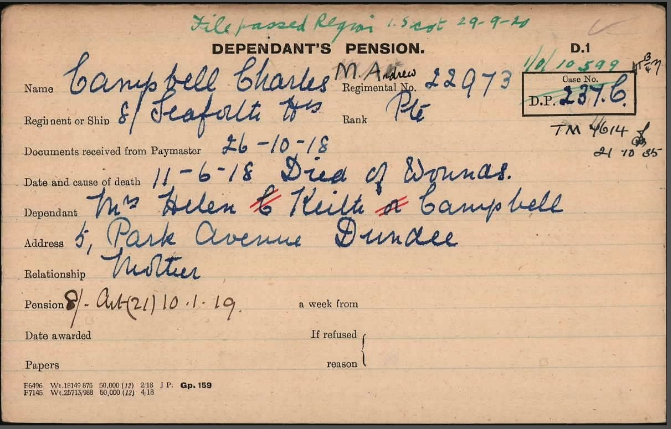 File passed Region 1. Scot 29-9-20
DEPENDANT'S PENSION.
D.1
1/0/10599
Name Campbell Charles M. Andrew Regimental No. 22973
Case No.
D.P. 237.C.
Regiment or Ship 8/ Seaforth Hrs Rank Pte
TM 4614
21 10 35
Documents received from Paymaster 26-10-18
Date and cause of death 11-6-18 Died of Wounds.
Dependant Mrs Helen C Keith or Campbell
Address 5, Park Avenue Dundee
Relationship Mother
Pension 8/- Art (21) 10.1.19. a week from
Date awarded If refused
Papers reason
F6496 Wt.18149 676 50,000 (12) 2/18 J P. Gp. 159
F7145 Wt.25713/988 60,000 (12) 4/18